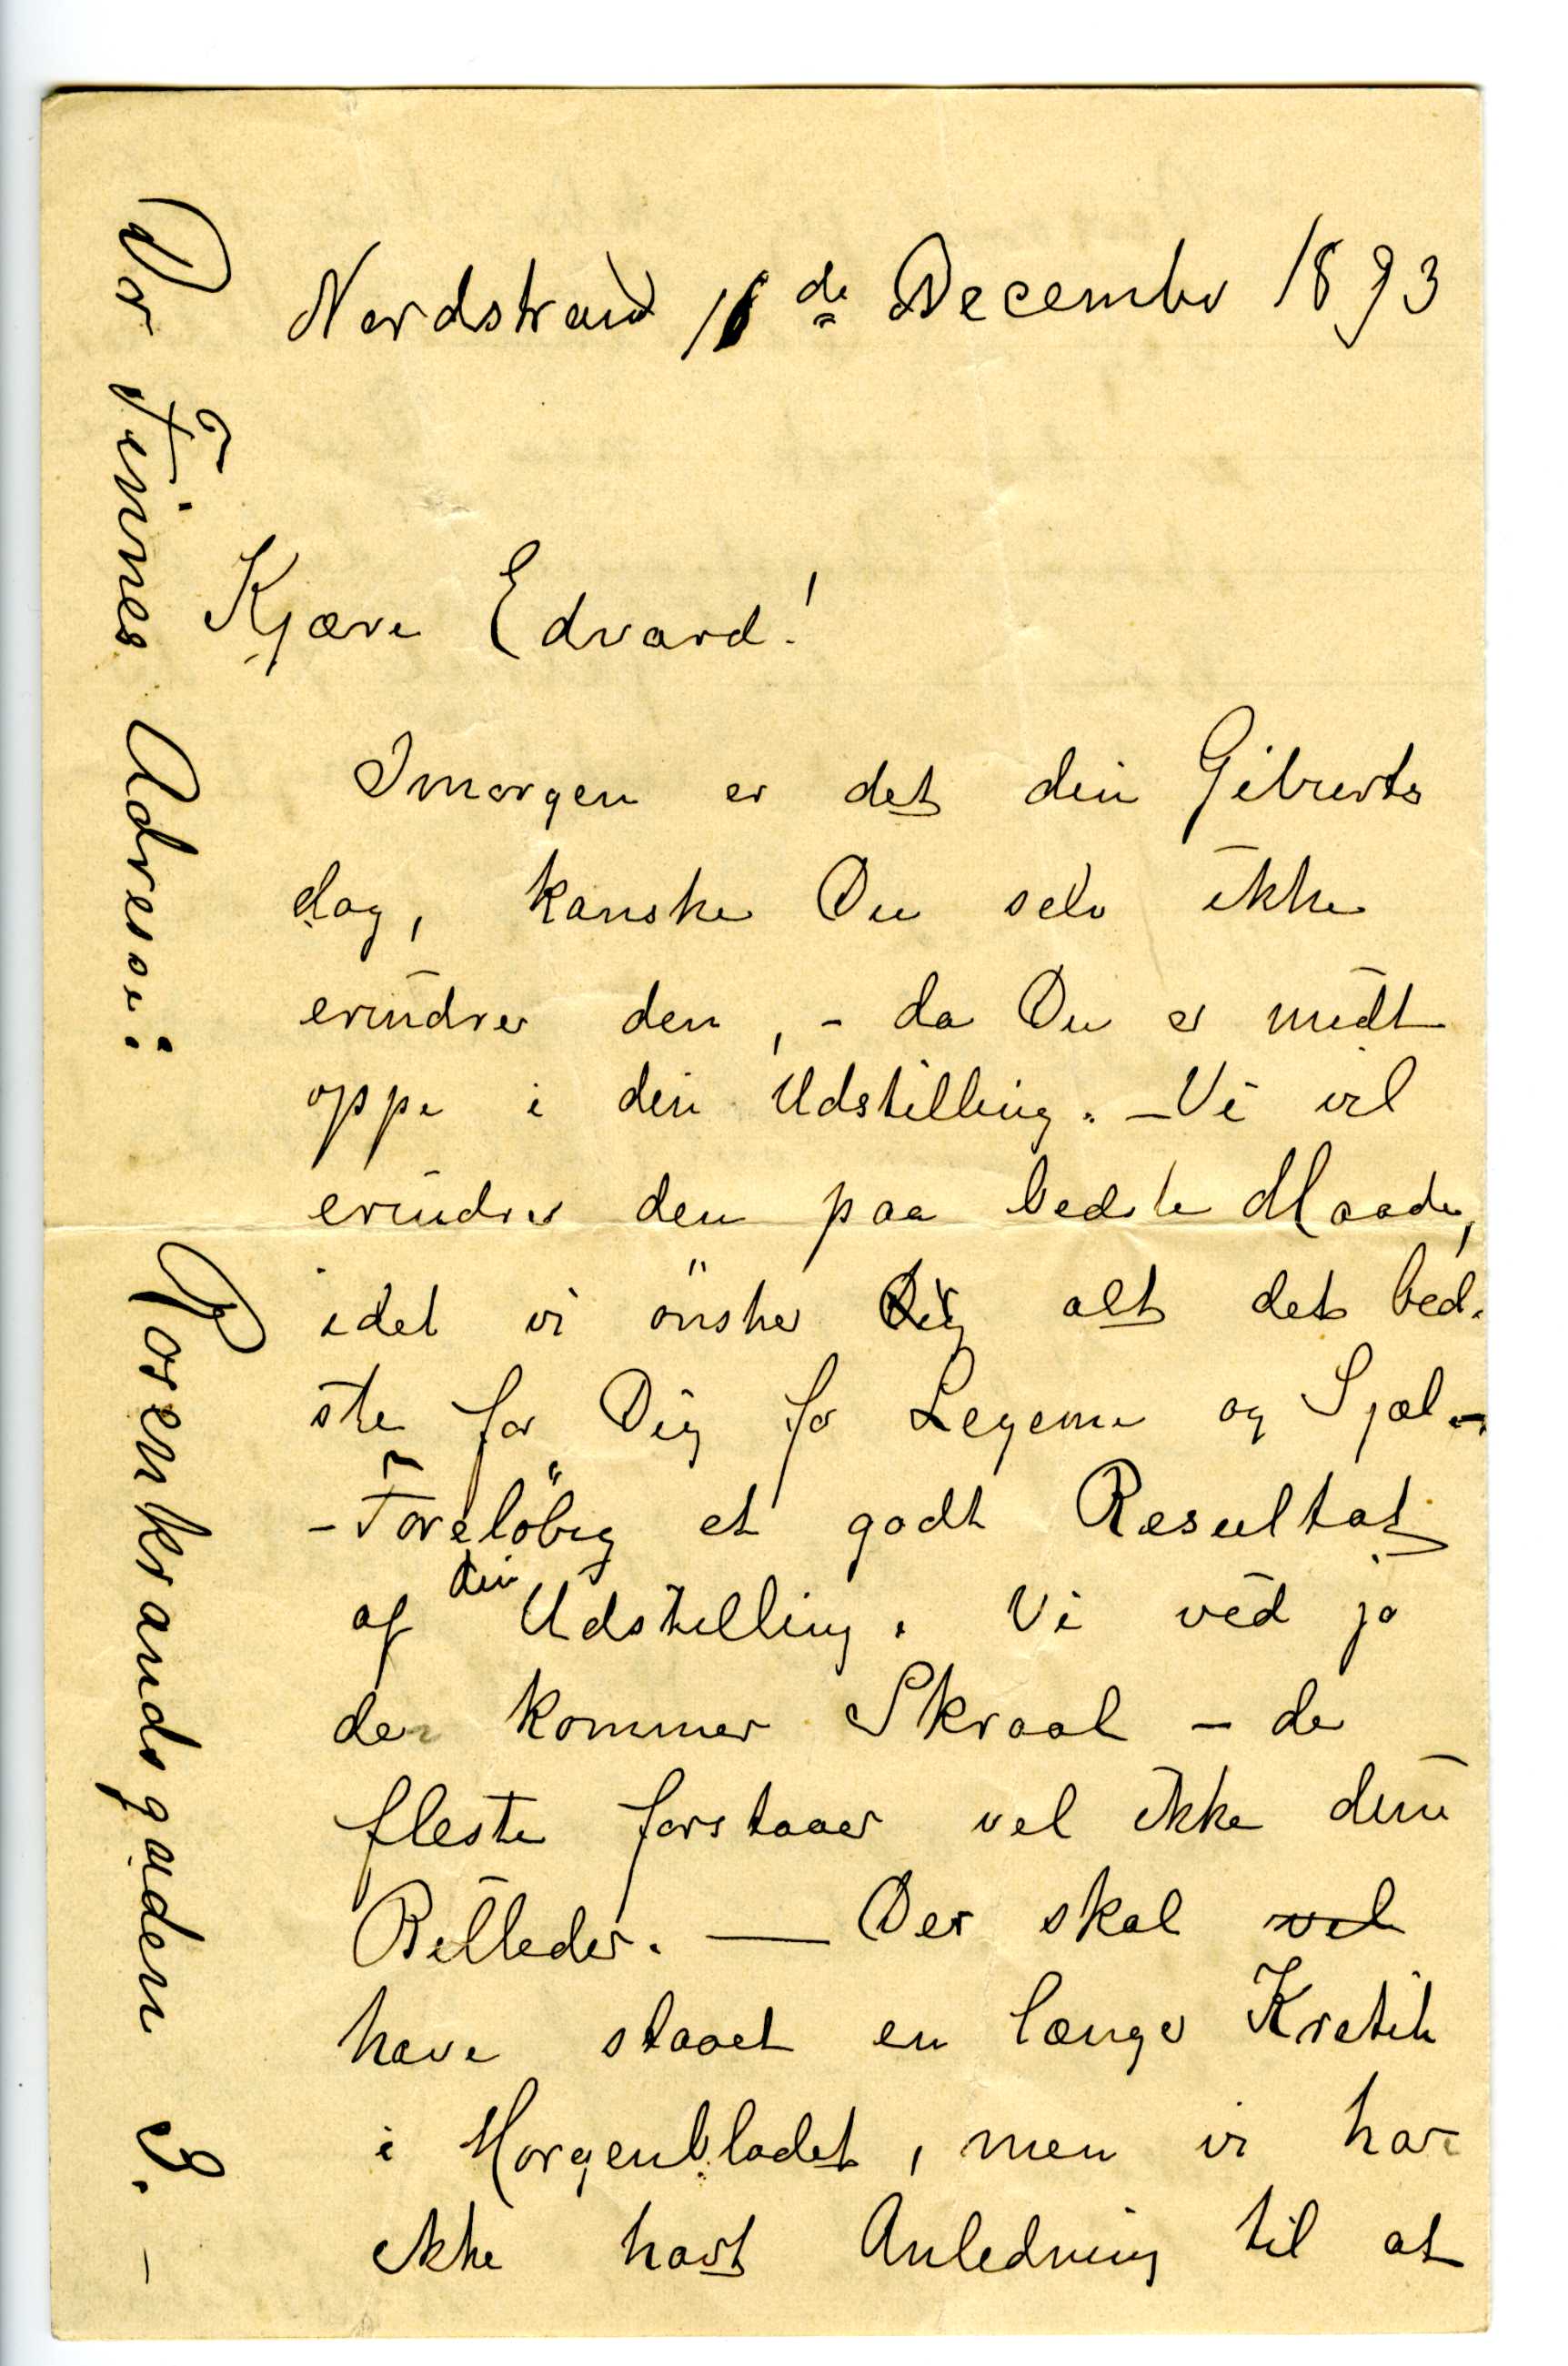 Nordstrand 11de December 1893
Kjære Edvard!
Imorgen er det din Geburts
dag, kanske Du selv ikke
erindrer den, - da Du er midt
oppe i din Udstilling. - Vi vil
erindre den paa bedste Maade,
idet vi önsker Dig alt det bed-
ste for Dig for Legeme og Sjæl -
- Foreløbig et godt Resultat
af din Udstilling. Vi ved jo
der kommer Skraal - de
fleste forstaaer vel ikke dine
Billeder. — Der skal vel
have staaet en længer Kritik
i Morgenbladet, men vi har
ikke havt Anledning til at
Dr Finnes Adresse:
Rosenkrandsgaden 8. -